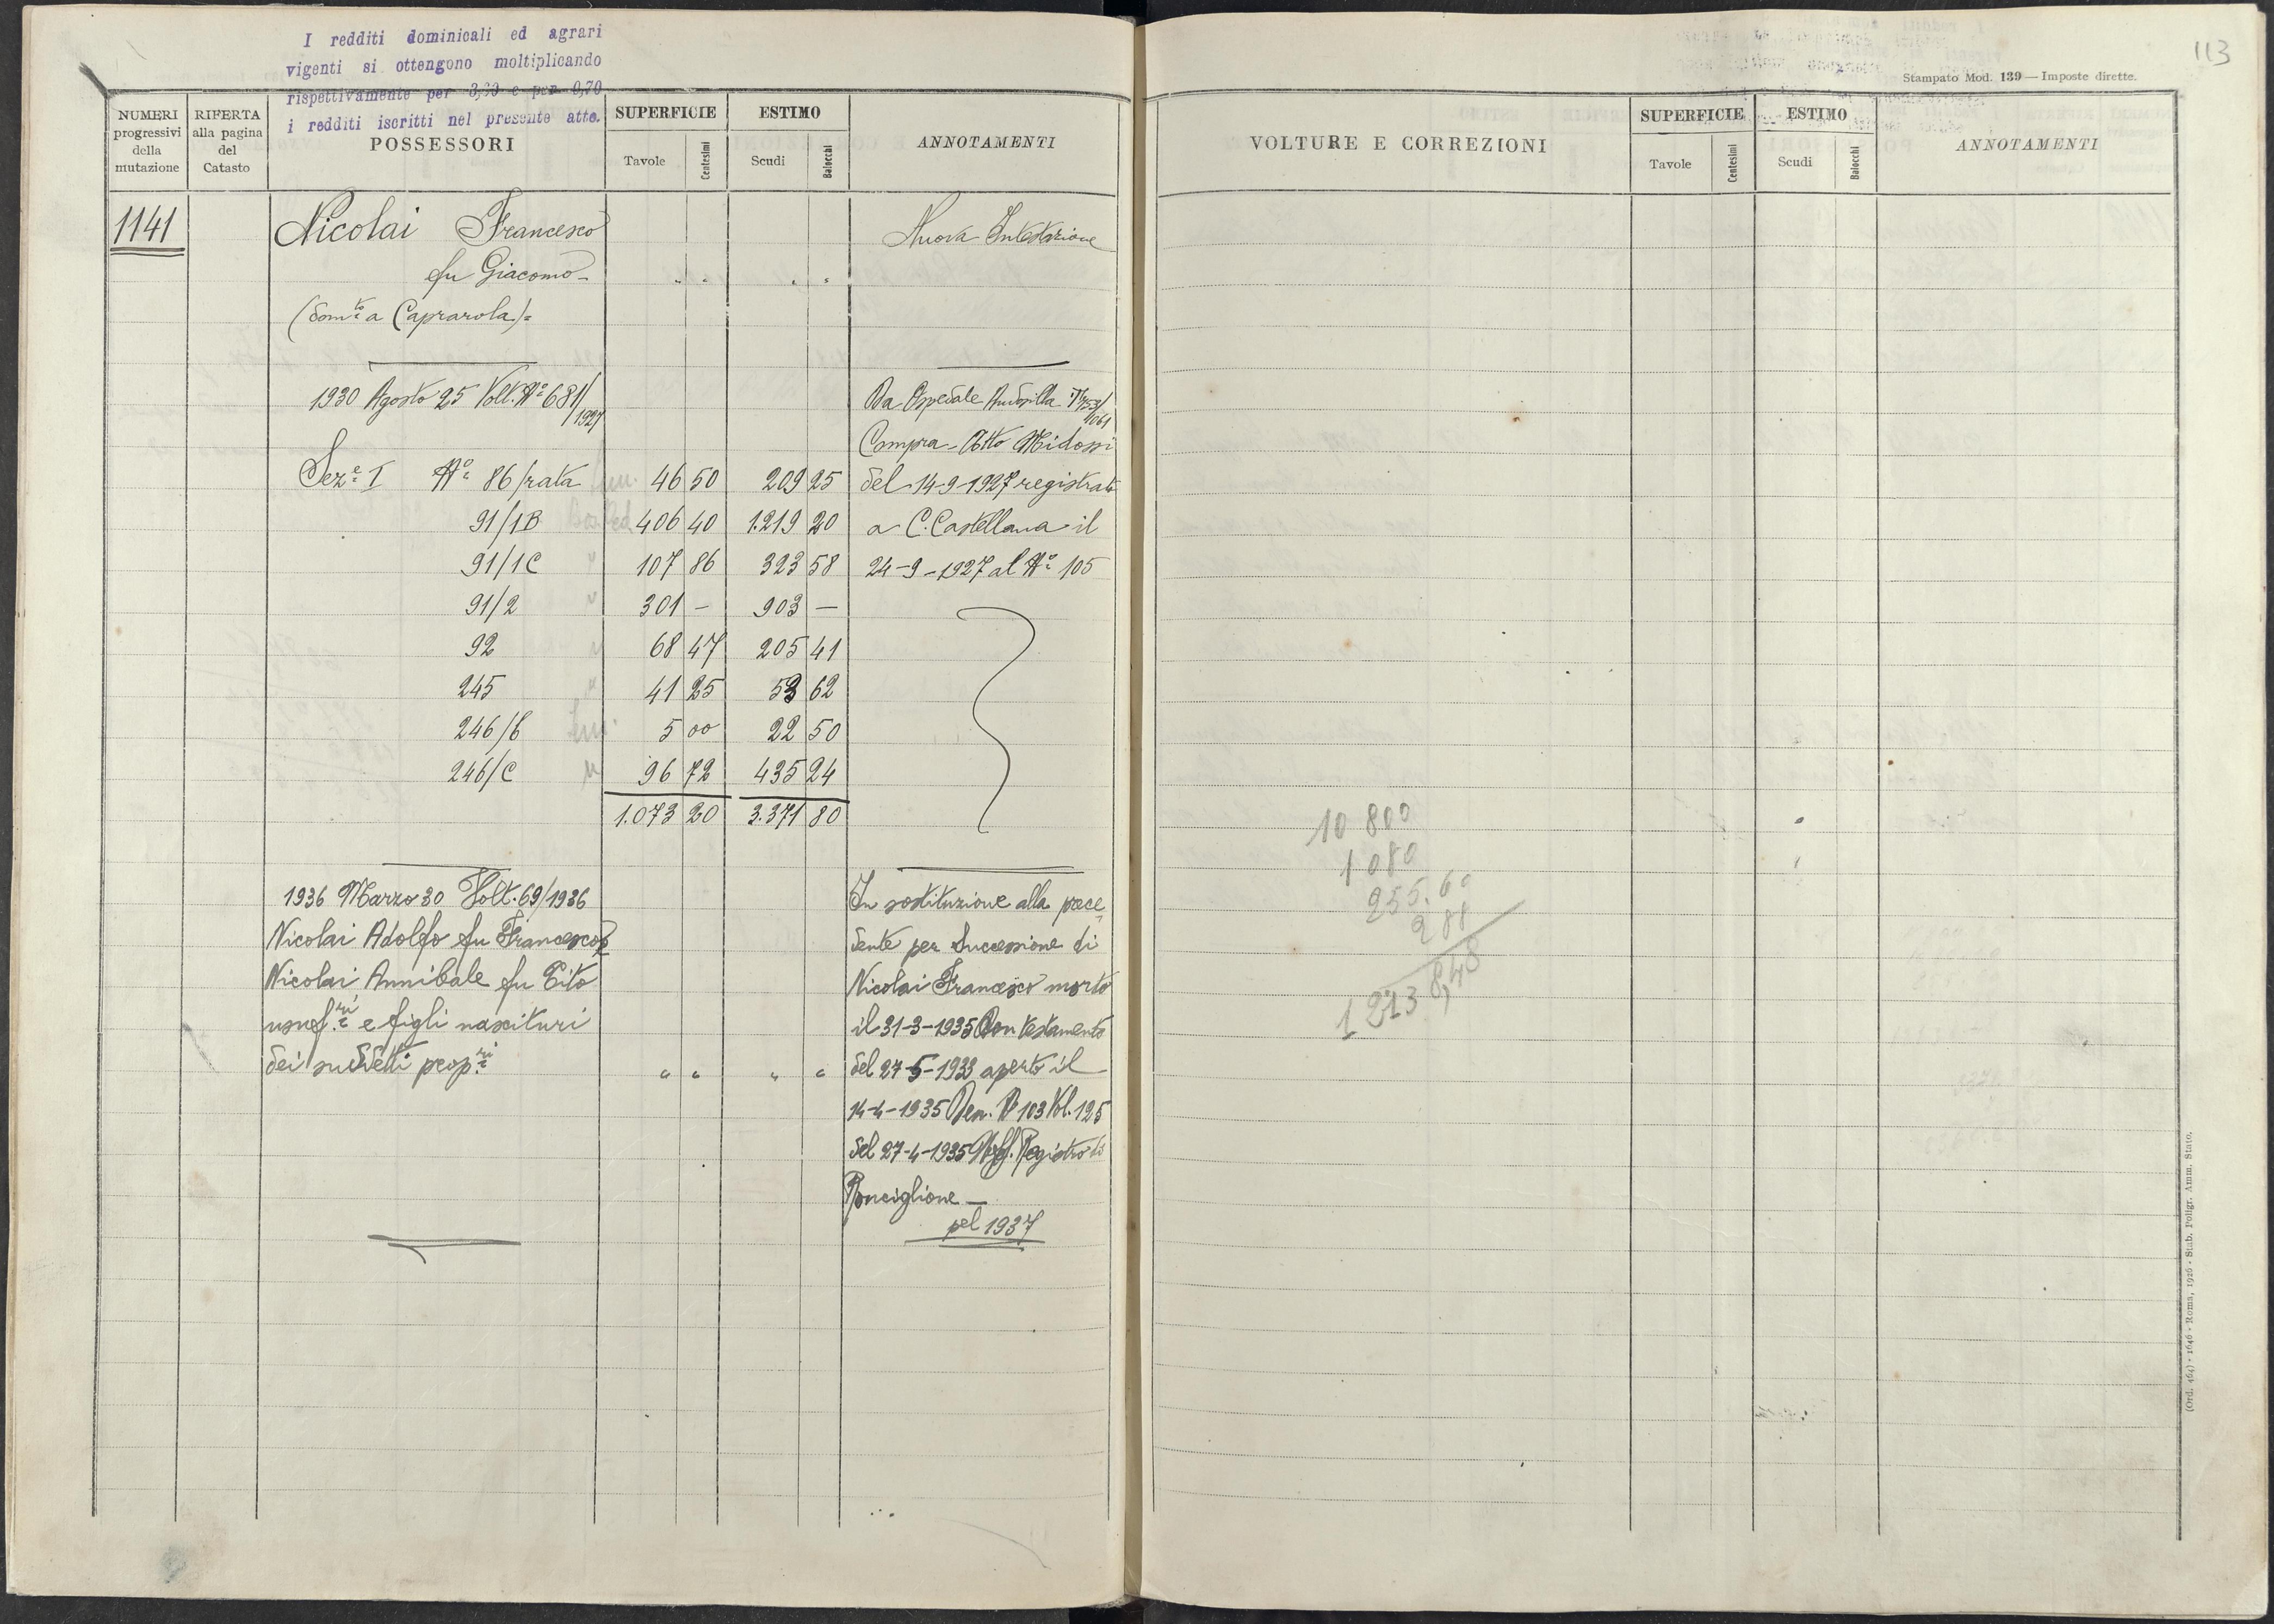 I redditi dominicali ed agrari
vigenti si ottengono moltiplicando
rispettivamente per 3,20 e per 0,70
i redditi iscritti nel presente atto.
NUMERI progressivi della mutazione
RIFERTA alla pagina del Catasto
POSSESSORI
SUPERFICIE
Tavole Centesimi
ESTIMO
Scudi Baiocchi
ANNOTAMENTI
1141 Nicolai Francesco Nuova Intestazione
fu Giacomo - " " " "
(dom.to a Caprarola)=
1930 Agosto 25 Volt. N° 681/1927 Da Ospedale Andosilla
Compra - Atto Midossi
Sez.e I N° 86/rata 46 50 209 25 del 14-9-1927 registrato
91/1B 406 40 1.219 20 a C. Castellana il
91/1C 107 86 323 58 24-9-1927 al N° 105
91/2 301 - 903 -
92 68 47 205 41
245 41 25 53 62
246/b 5 00 22 50
246/C 96 72 435 24
1.073 20 3.371 80
1936 Marzo 30 Volt. 69/1936 In sostituzione alla prece
Nicolai Adolfo fu Francesco e dente per successione di
Nicolai Annibale fu Tito Nicolai Francesco morto
usuf.ri e figli nascituri il 31-3-1935 Con testamento
dei suddetti prop.ri " " " " del 27-5-1933 aperto il
14-4-1935 Den. N° 103 Vol. 125
del 27-4-1935 Uff. Registro di
Ronciglione -
pel 1937
113
Stampato Mod. 139 — Imposte dirette.
VOLTURE E CORREZIONI
SUPERFICIE
Tavole Centesimi
ESTIMO
Scudi Baiocchi
ANNOTAMENTI
10 800
1 080
255.60
288
(Ord. 464) - 1646 - Roma, 1926 - Stab. Poligr. Amm. Stato.